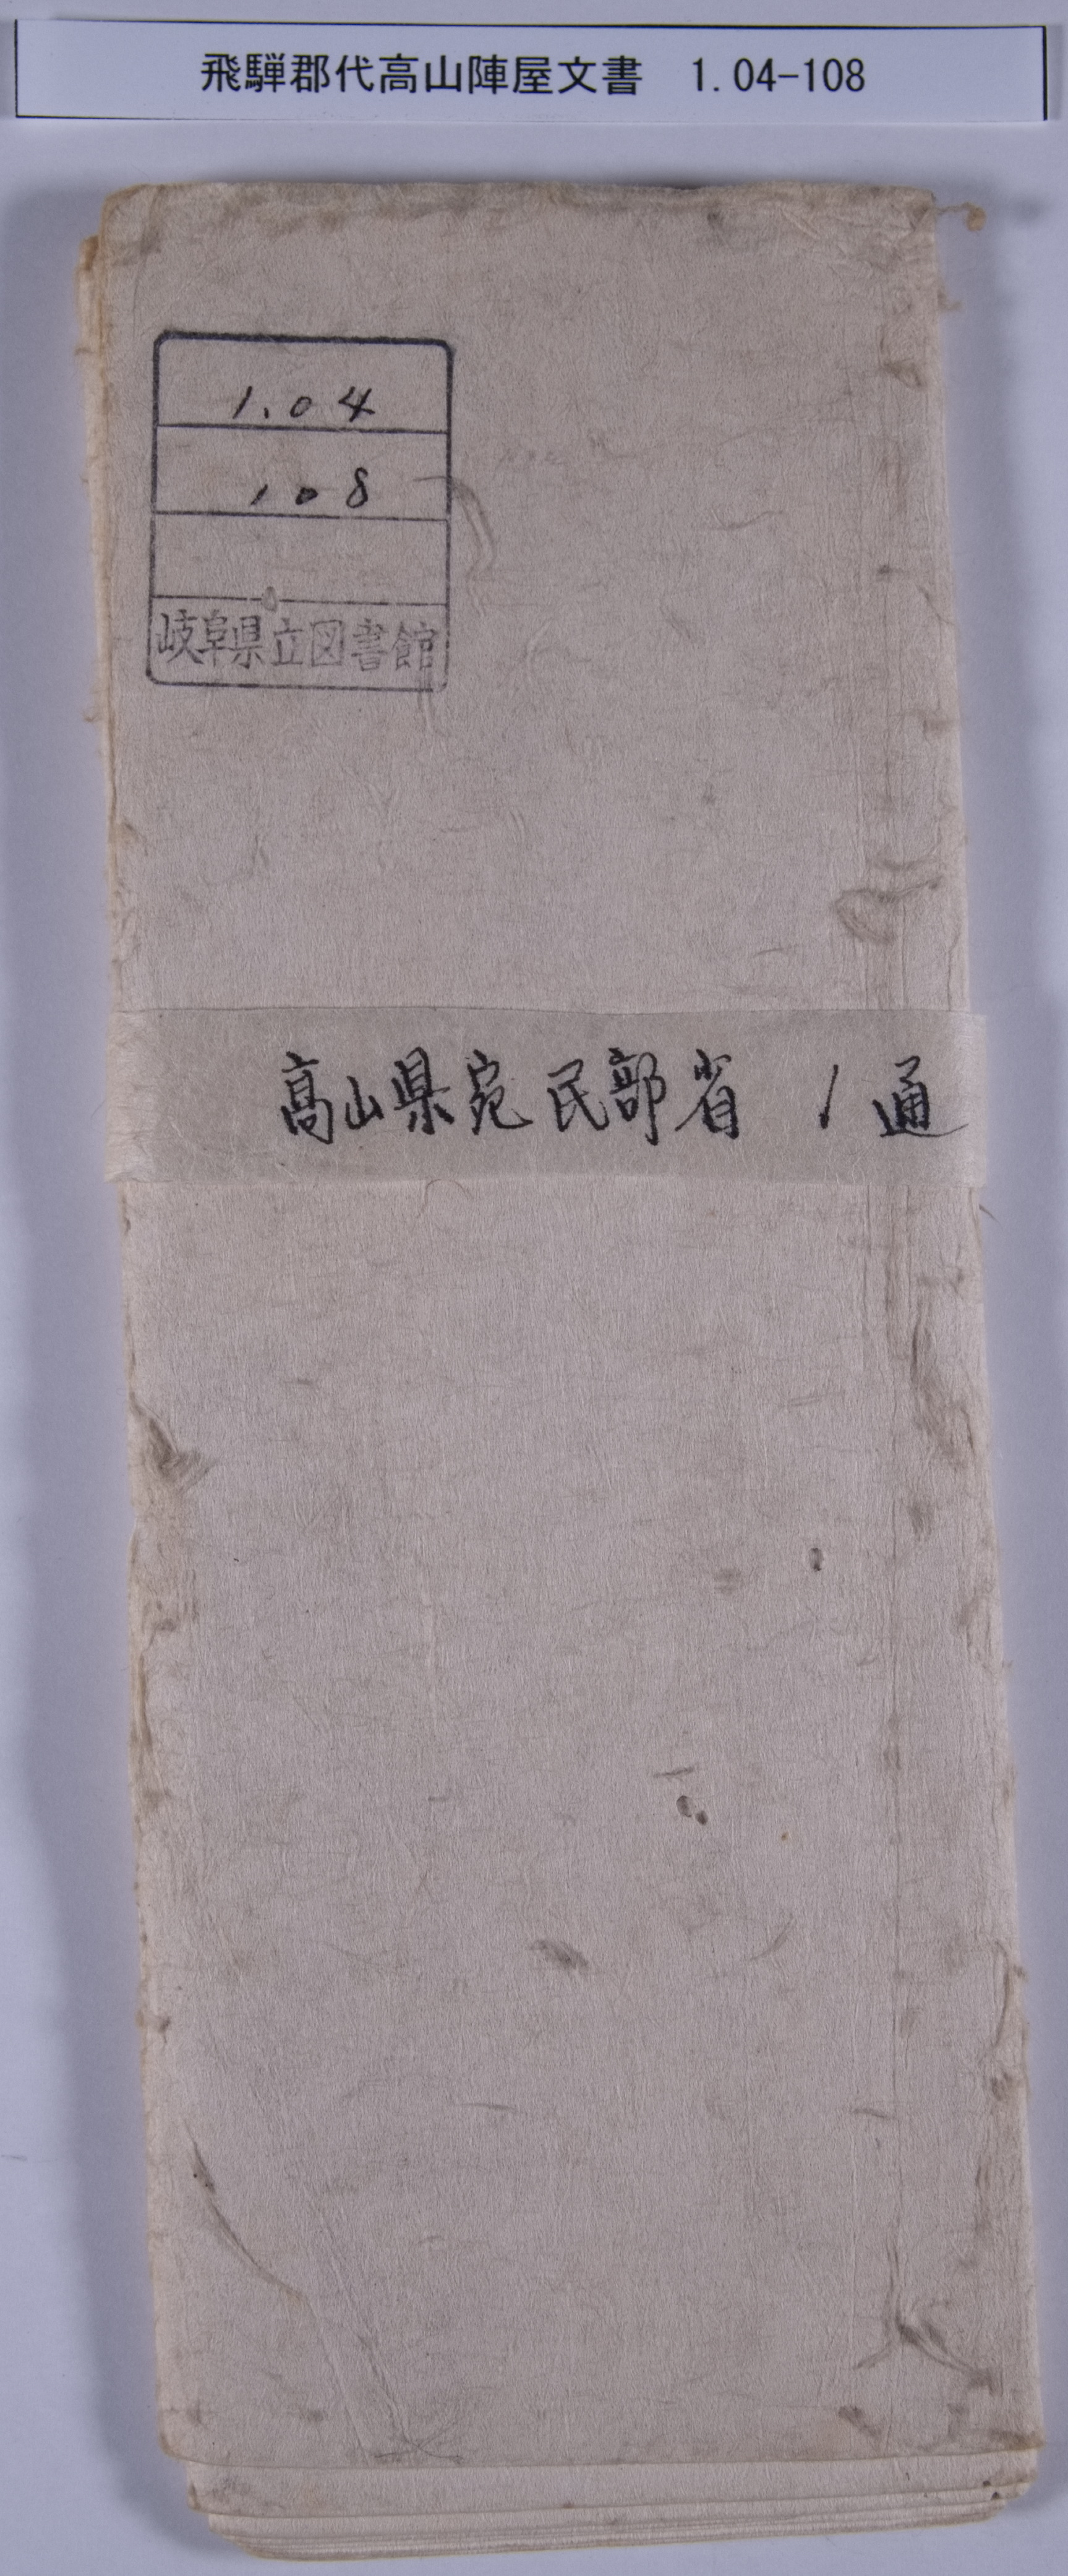 飛騨郡代高山陣屋文書 1.04-108
1.04
108
岐阜県立図書館
高山県宛民部省 1通